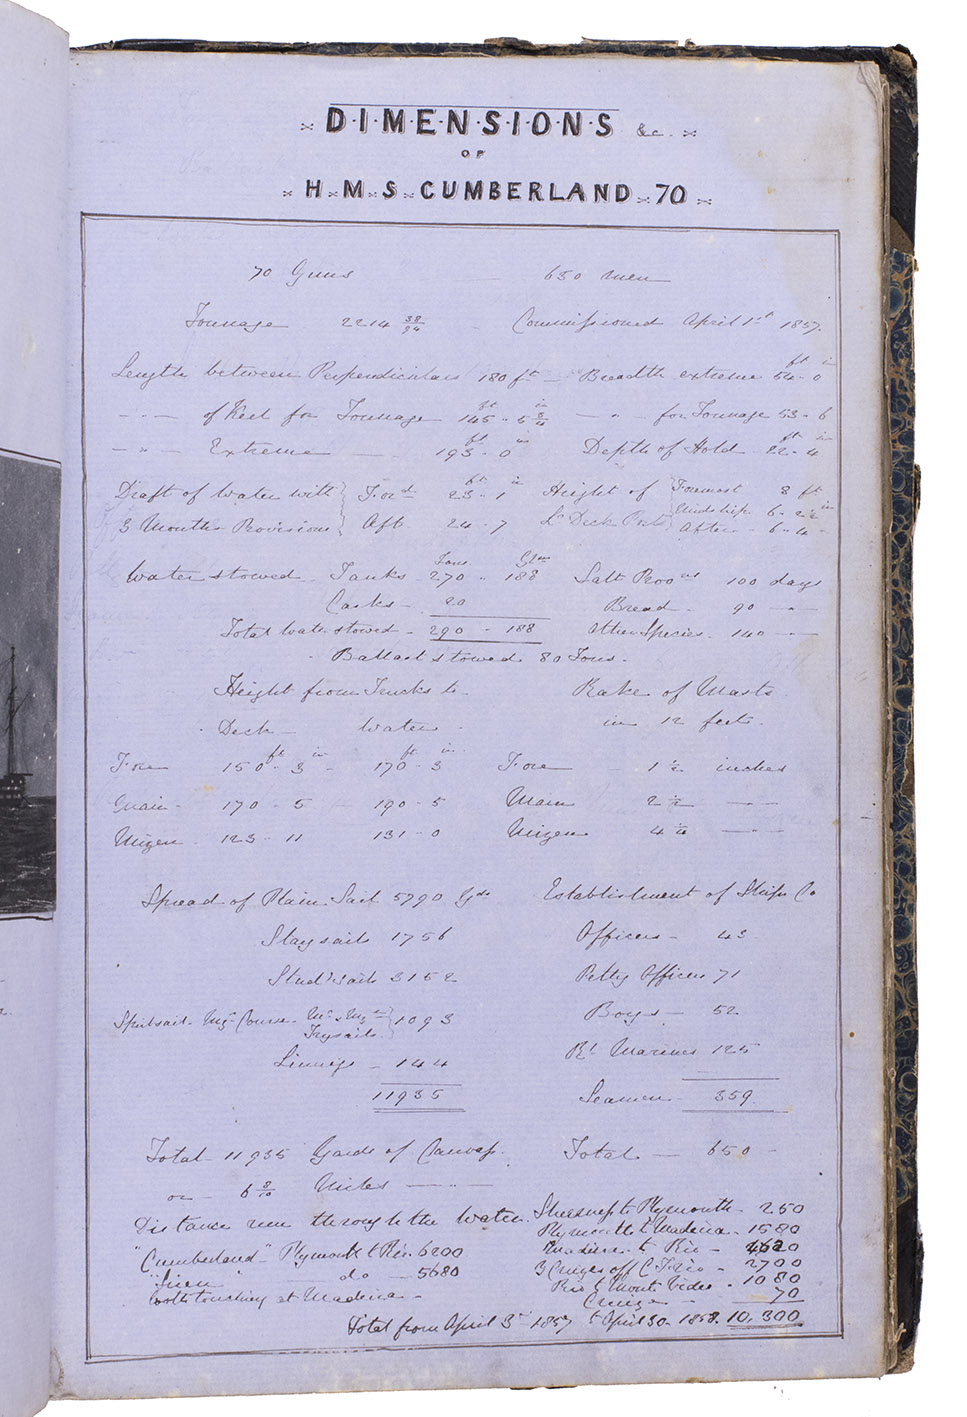 DIMENSIONS &c.
OF
H.M.S. CUMBERLAND 70
70 Guns — 650 men
Tonnage 2214 38/94 Commissioned April 1st 1857.
Length between Perpendiculars 180 ft — Breadth extreme 54 ft 0 in
— " — of Keel for Tonnage 145 ft 5 in — " — for Tonnage 53 - 6
— " — Extreme — 193 ft 0 in Depth of Hold 22 ft 4 in
Draft of Water with } Ford 23 ft 1 in Height of { Foremost 8 ft
3 Months Provisions } Aft. 24 - 7 Lr Deck Ports { Midship. 6 - 2 1/2 in
After - 6 - 4
Tons Glns
Water stowed - Tanks - 270 " 188 Salt Provns 100 days
Casks - 20 Bread - 90 — " —
Total Water stowed - 290 - 188 Other Species. 140 — " —
Ballast stowed 80 Tons.
Height from Trucks to Rake of Masts
Deck - Water - in 12 feet.
Fore 150 ft 3 in - 170 ft 3 in Fore - 1 1/2 inches
Main - 170 - 5 190 - 5 Main 2 1/2 — " —
Mizen - 123 - 11 131 - 0 Mizen 4 1/4 — " —
Spread of Plain Sail 5790 Yds Establishment of Ships Co
Staysails 1756 Officers - 43
Studsails 3152 Petty Officers 71
Spritsail. Mzn Course. Mn & Mzn Trysails } 1093 Boys - 52.
Rl Marines 125
Linnings - 144
11935 Seamen - 359
Total - 11935 Yards of Canvass. Total — 650
or - 6 8/10 Miles — " —
Distance run through the Water. Sheerness to Plymouth - 250
Plymouth to Madeira - 1580
"Cumberland" Plymouth to Rio. 6200 Madeira to Rio - 4620
"Siren" do - 5680 3 Cruizes off C. Frio - 2700
both touching at Madeira - Rio to Monte Video - 1080
Cruize - 70
Total from April 3rd 1857 to April 30 - 1858. 10,300